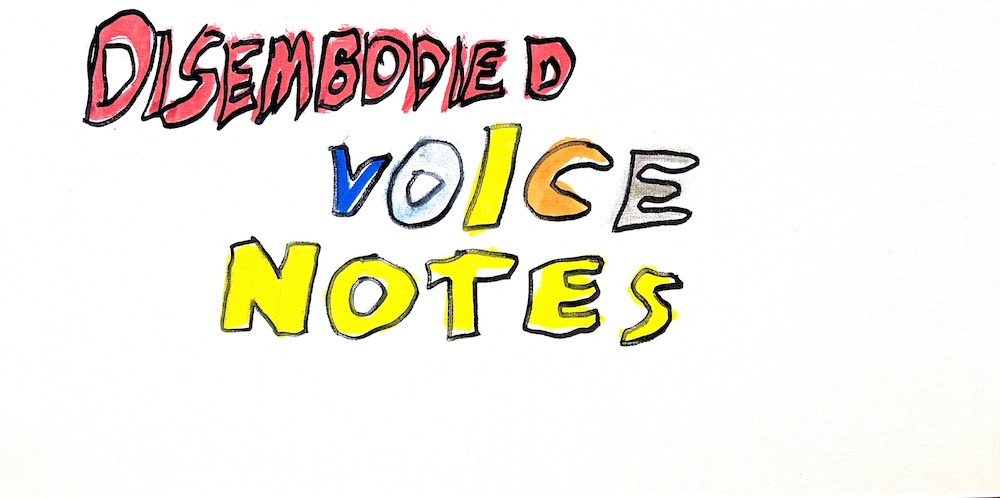 DISEMBODIED
VOICE
NOTES